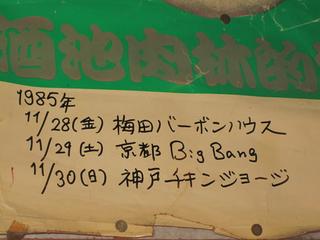 酒池肉林的
1985年
11/28(金) 梅田バーボンハウス
11/29(土) 京都 Big Bang
11/30(日) 神戸チキンジョージ